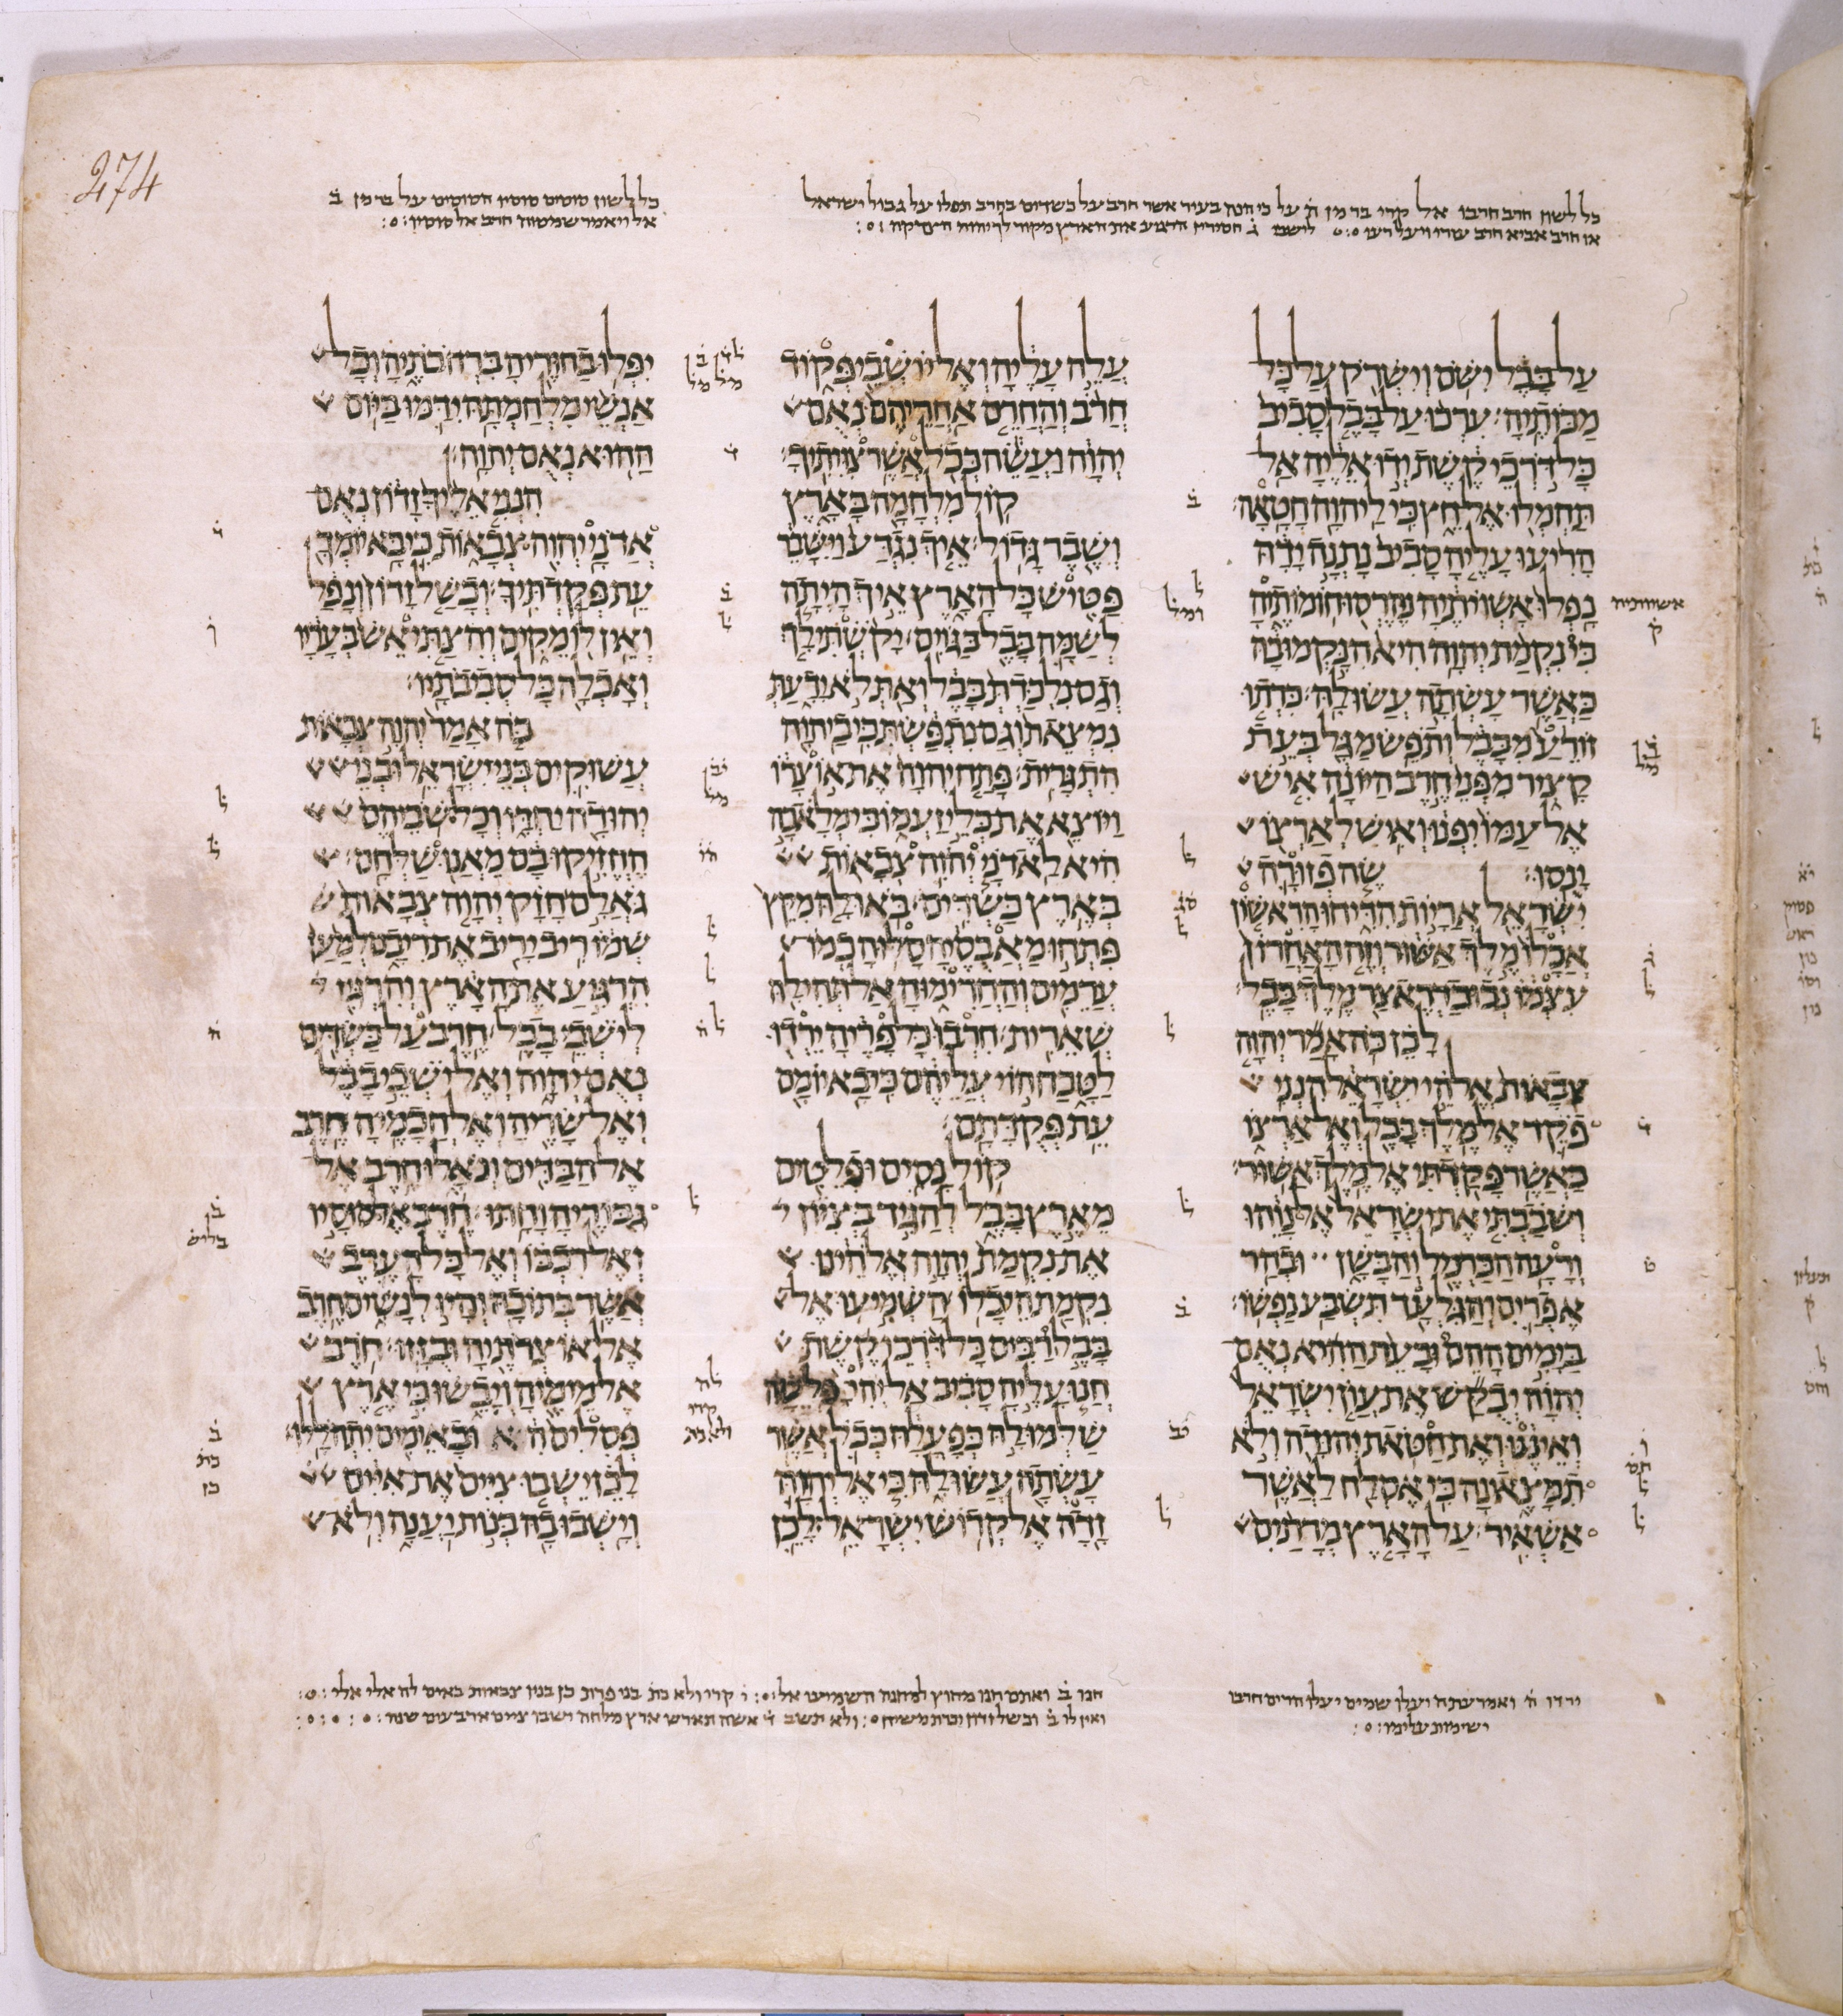 274
כל לשון חרב חרבו אל קרי בר מן
כל לשון סוסים סוסיו הסוסים על בר מן ב
על בבל ישם וישרק על כל
מכותיה ערכו על בבל סביב
כל דרכי קשת ידו אליה אל
תחמלו אל חץ כי ליהוה חטאה
הריעו עליה סביב נתנה ידה
נפלו אשויתיה נהרסו חומותיה
כי נקמת יהוה היא הנקמו בה
כאשר עשתה עשו לה כרתו
זורע מבבל ותפש מגל בעת
קציר מפני חרב היונה איש
אל עמו יפנו ואיש לארצו
ינסו שה פזורה
ישראל אריות הדיחו הראשון
אכלו מלך אשור וזה האחרון
עצמו נבוכדראצר מלך בבל
לכן כה אמר יהוה
צבאות אלהי ישראל הנני
פקד אל מלך בבל ואל ארצו
כאשר פקדתי אל מלך אשור
ושבבתי את ישראל אל נוהו
ורעה הכרמל והבשן ובהר
אפרים והגלעד תשבע נפשו
בימים ההם ובעת ההיא נאם
יהוה יבקש את עון ישראל
ואיננו ואת חטאת יהודה ולא
תמצאינה כי אסלח לאשר
אשאיר על הארץ מרתים
עלה עליה ואל יושבי פקוד
חרב והחרם אחריהם נאם
יהוה ועשה ככל אשר צויתיך
קול מלחמה בארץ
ושבר גדול איך נגדע וישבר
פטיש כל הארץ איך היתה
לשמה בבל בגוים יקשתי לך
וגם נלכדת בבל ואת לא ידעת
נמצאת וגם נתפשת כי ביהוה
התגרית פתח יהוה את אוצרו
ויוצא את כלי זעמו כי מלאכה
היא לאדני יהוה צבאות
בארץ כשדים באו לה מקץ
פתחו מאבסיה סלוה כמו
ערמים והחרימוה אל תהי לה
שארית חרבו כל פריה ירדו
לטבח הוי עליהם כי בא יומם
עת פקדתם
קול נסים ופלטים
מארץ בבל להגיד בציון
את נקמת יהוה אלהינו
נקמת היכלו השמיעו אל
בבל רבים כל דרכי קשת
חנו עליה סביב אל יהי פלטה
שלמו לה כפעלה ככל אשר
עשתה עשו לה כי אל יהוה
זדה אל קדוש ישראל לכן
יפלו בחוריה ברחבתיה וכל
אנשי מלחמתה ידמו ביום
ההוא נאם יהוה
הנני אליך זדון נאם
אדני יהוה צבאות כי בא יומך
עת פקדתיך וכשל זדון ונפל
ואין לו מקים והצתי אש בעריו
ואכלה כל סביבתיו
כה אמר יהוה צבאות
עשוקים בני ישראל ובני
יהודה יחדו וכל שביהם
החזיקו בם מאנו שלחם
גאלם חזק יהוה צבאות
שמו ריב יריב את ריבם למען
הרגיע את הארץ והרגיז
לישבי בבל חרב על כשדים
נאם יהוה ואל ישבי בבל
ואל שריה ואל חכמיה חרב
אל הבדים ונאלו חרב אל
גבוריה וחתו חרב אל סוסיו
ואל רכבו ואל כל הערב
אשר בתוכה והיו לנשים חרב
אל אוצרתיה ובזזו חרב
אל מימיה ויבשו כי ארץ
פסלים היא ובאימים יתהללו
לכן ישבו ציים את איים
וישבו בה בנות יענה ולא
ירדו ואמר עתה יעלו שמים יעלו הרים חרבו
ושימות עלימו